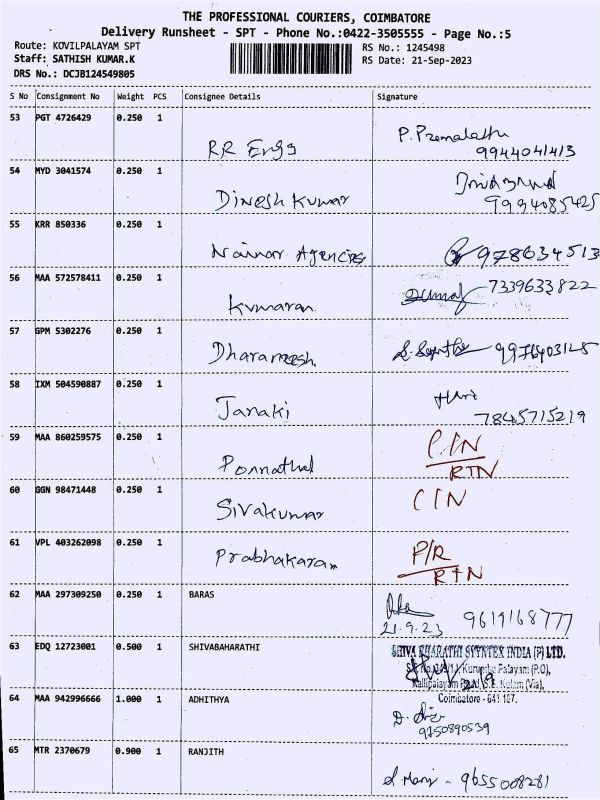 THE PROFESSIONAL COURIERS, COIMBATORE
Delivery Runsheet - SPT - Phone No.:0422-3505555 - Page No.:5
Route: KOVILPALAYAM SPT
RS No.: 1245498
Staff: SATHISH KUMAR.K
RS Date: 21-Sep-2023
DRS No.: DCJB124549805
S No Consignment No Weight PCS Consignee Details Signature
53 PGT 4726429 0.250 1
RR Engg P. Premalatha
9944041413
54 MYD 3041574 0.250 1
Dinesh Kumar
9994085425
55 KRR 850336 0.250 1
Nainar Agencies 978634513
56 MAA 572578411 0.250 1
Kumaran 7339633822
57 GPM 5302276 0.250 1
Dharameesh
58 IXM 504590887 0.250 1
Janaki Hari
7845715219
59 MAA 860259575 0.250 1 C/N
Ponnathal RTN
60 GGN 98471448 0.250 1 C/N
Sivakumar
61 VPL 403262098 0.250 1
Prabhakaran P/R
RTN
62 MAA 297309250 0.250 1 BARAS
21.9.23 9619168777
63 EDQ 12723001 0.500 1 SHIVABAHARATHI SHIVA BHARATHI SYNTEX INDIA (P) LTD.
Kurumba Palayam (P.O),
Kallipalayam Road, S.S. Kulam (Via),
Coimbatore - 641 107.
64 MAA 942996666 1.000 1 ADHITHYA
9150890539
65 MTR 2370679 0.900 1 RANJITH
S Mani - 9655008281